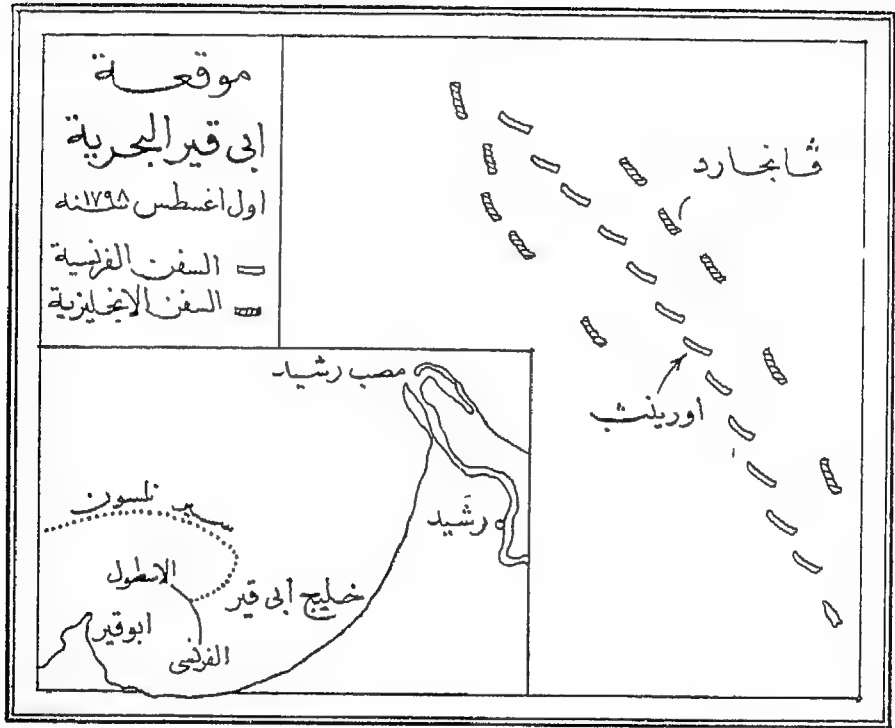 موقعة
ابى قير البحرية
اول اغسطس سنه ١٧٩٨
السفن الفرنسية
السفن الانجليزية
ڤانجارد
اورينت
مصب رشيد
رشيد
سير نلسون
الاسطول
الفرنسى
خليج أبى قير
ابوقير